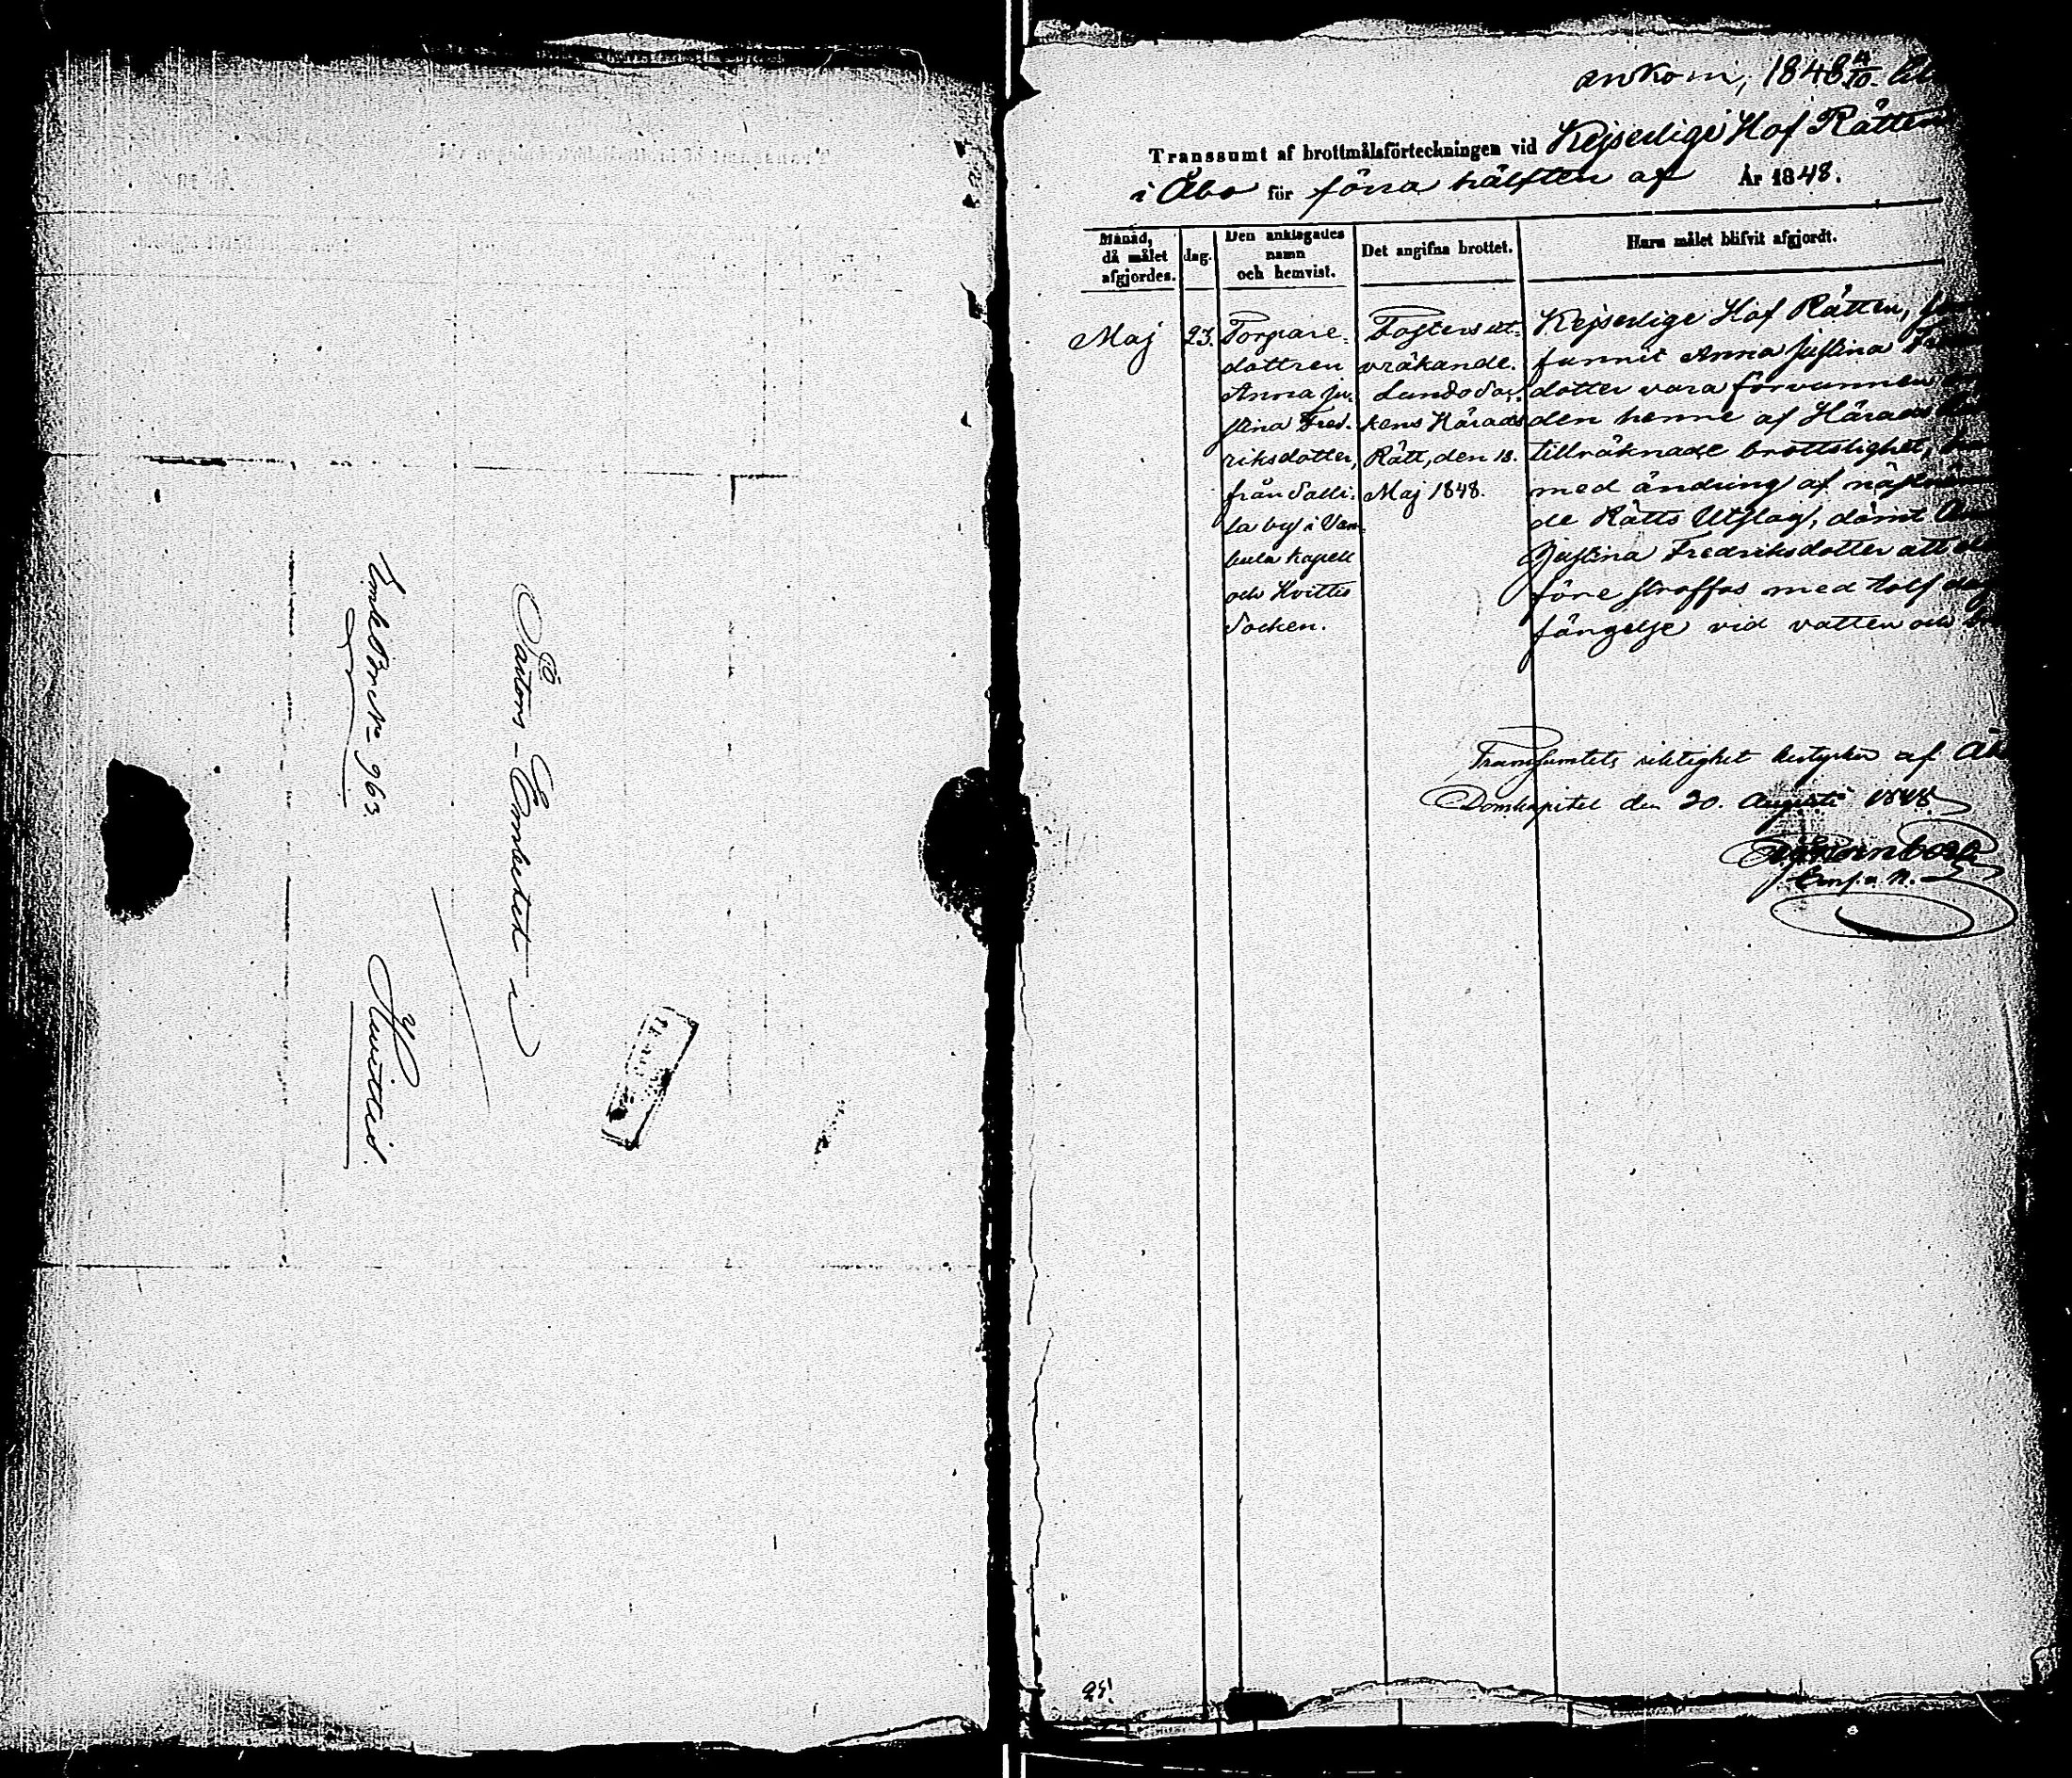 Pastors-Embetet i
Huvittis
Embets Bref No 963.
ankom, 1848
Transsumt af brottmålsförteckningen vid Kejserlige Hof Rätten
i Åbo för förra hälften af År 1848.
Månad,
då målet
afgjordes.
dag.
Den anklagades
namn
och hemvist.
Det angifna brottet.
Huru målet blifvit afgjordt.
Maj
23.
Torpare-
dottren
Anna Ju-
stina Fred-
riksdotter,
från Salli-
la by i Vam-
bula kapell
och Hvittis
Socken.
Fosters ut-
vräkande.
Lundo Soc-
kens Härads
Rätt, den 18.
Maj 1848.
Kejserlige Hof Rätten,
funnit Anna Justina
dotter vara förvunnen
den henne af Härads
tillräknade brottslighet,
med ändring af
de Rätts Utslag, dömt
Justina Fredriksdotter att
före straffas med tolf
fängelse vid vatten och
Transsumtets riktighet bestyrker af
Domkapitel den 30. Augusti 1848